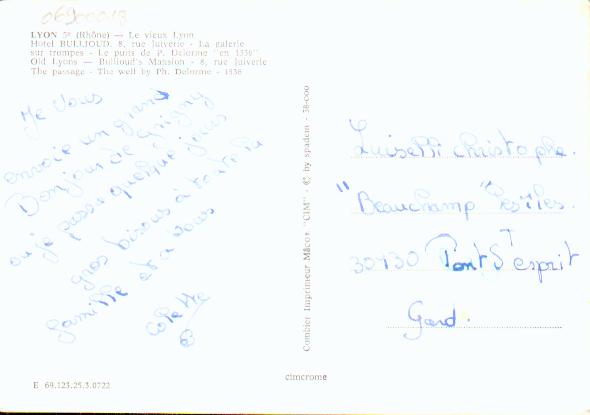 06900018
LYON 5e (Rhône) — Le vieux Lyon
Hotel BULLIOUD, 8, rue Juiverie - La galerie
sur trompes - Le puits de P. Delorme "en 1536"
Old Lyons — Bullioud's Mansion - 8, rue Juiverie
The passage - The well by Ph. Delorme - 1536
Je vous
envoie un grand
Bonjour de Grigny
ou je passe quelque jours
gros bisous à toute la
famille et a vous
Colette
Combier Imprimeur Mâcon "CIM" - © by spadem - 38-000
Luiselli christophe.
"Beauchamp" les îles.
30130 Pont St esprit
Gard.
E 69.123.25.3.0722
cimcrome